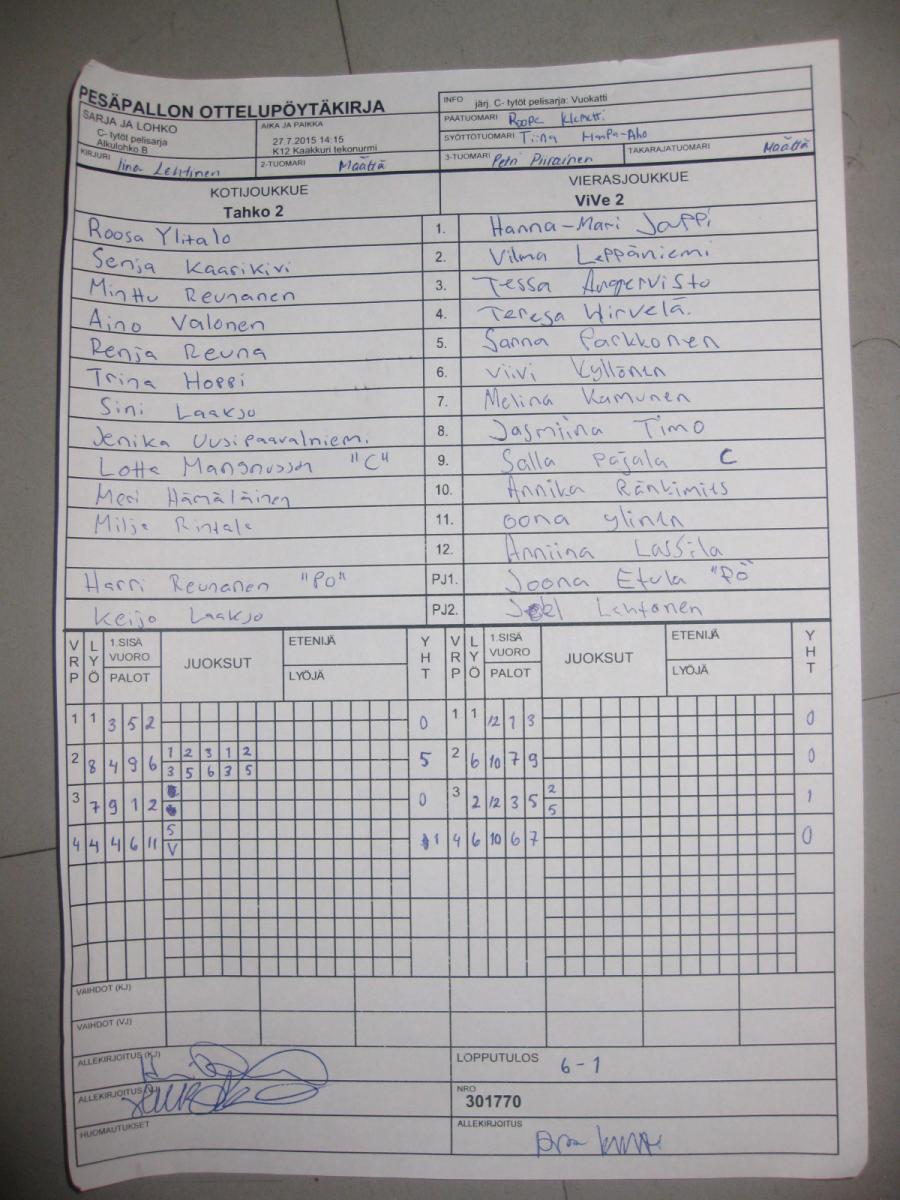 PESÄPALLON OTTELUPÖYTÄKIRJA
INFO järj. C- tytöt pelisarja: Vuokatti
SARJA JA LOHKO
C- tytöt pelisarja
Alkulohko B
AIKA JA PAIKKA
27.7.2015 14:15
K12 Kaakkuri tekonurmi
PÄÄTUOMARI Roope
SYÖTTÖTUOMARI Tiina
KIRJURI Iina Lehtinen
2-TUOMARI Määttä
3-TUOMARI Petri Piirainen
TAKARAJATUOMARI Määttä
KOTIJOUKKUE
Tahko 2
VIERASJOUKKUE
ViVe 2
Roosa Ylitalo 1. Hanna-Mari Jappi
Senja Kaarikivi 2. Vilma Leppäniemi
Minttu Reunanen 3. Tessa Angervisto
Aino Valonen 4. Teresa Hirvelä.
Renja Reuna 5. Sanna Parkkonen
Triina Hoppi 6. Viivi Kyllönen
Sini Laakso 7. Melina Kamunen
Jenika Uusipaavalniemi 8. Jasmiina Timo
Lotta Mangnusson "C" 9. Salla Pajala C
Meri Hämäläinen 10. Annika
Milja Rintala 11. Oona Ylinen
12. Anniina Lassila
Harri Reunanen "PO" PJ1. Joona Etula "PO"
Keijo Laakso PJ2. Joel Lehtonen
VRP LYÖ 1.SISÄ VUORO PALOT JUOKSUT ETENIJÄ LYÖJÄ YHT VRP LYÖ 1.SISÄ VUORO PALOT JUOKSUT ETENIJÄ LYÖJÄ YHT
1 1 3 5 2 0 1 1 12 1 3 0
2 8 4 9 6 1 2 3 1 2 5 2 6 10 7 9 0
3 5 6 3 5
3 7 9 1 2 0 3 2 12 3 5 2 1
5
4 4 4 6 11 5 1 4 6 10 6 7 0
V
VAIHDOT (KJ)
VAIHDOT (VJ)
ALLEKIRJOITUS (KJ)
LOPPUTULOS 6-1
ALLEKIRJOITUS (VJ)
NRO
301770
HUOMAUTUKSET
ALLEKIRJOITUS